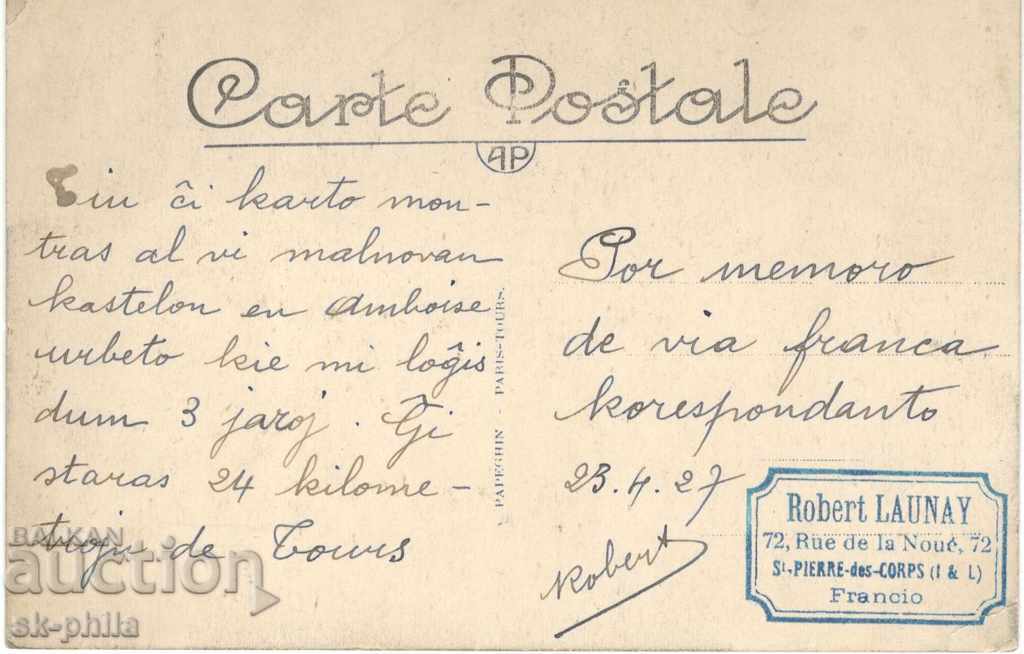 Carte Postale
AP
Tiu ĉi karto mon-
tras al vi malnovan
kastelon en Amboise
urbeto kie mi loĝis
dum 3 jaroj. Ĝi
staras 24 kilome-
trojn de Tours
PAPEGHIN - PARIS-TOURS.
Por memoro
de via franca
korespondanto
23.4.27
Robert
Robert LAUNAY
72, Rue de la Noué, 72
St-PIERRE-des-CORPS (I & L)
Francio
BALKAN
auction
sk-phila